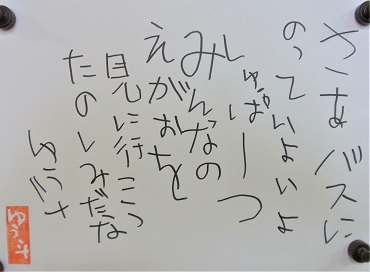 さあ バスに
のっていよいよ
しゅっぱーつ
みんなの
えがおを
見に行こう
たのしみだな
ゆう斗
ゆう斗